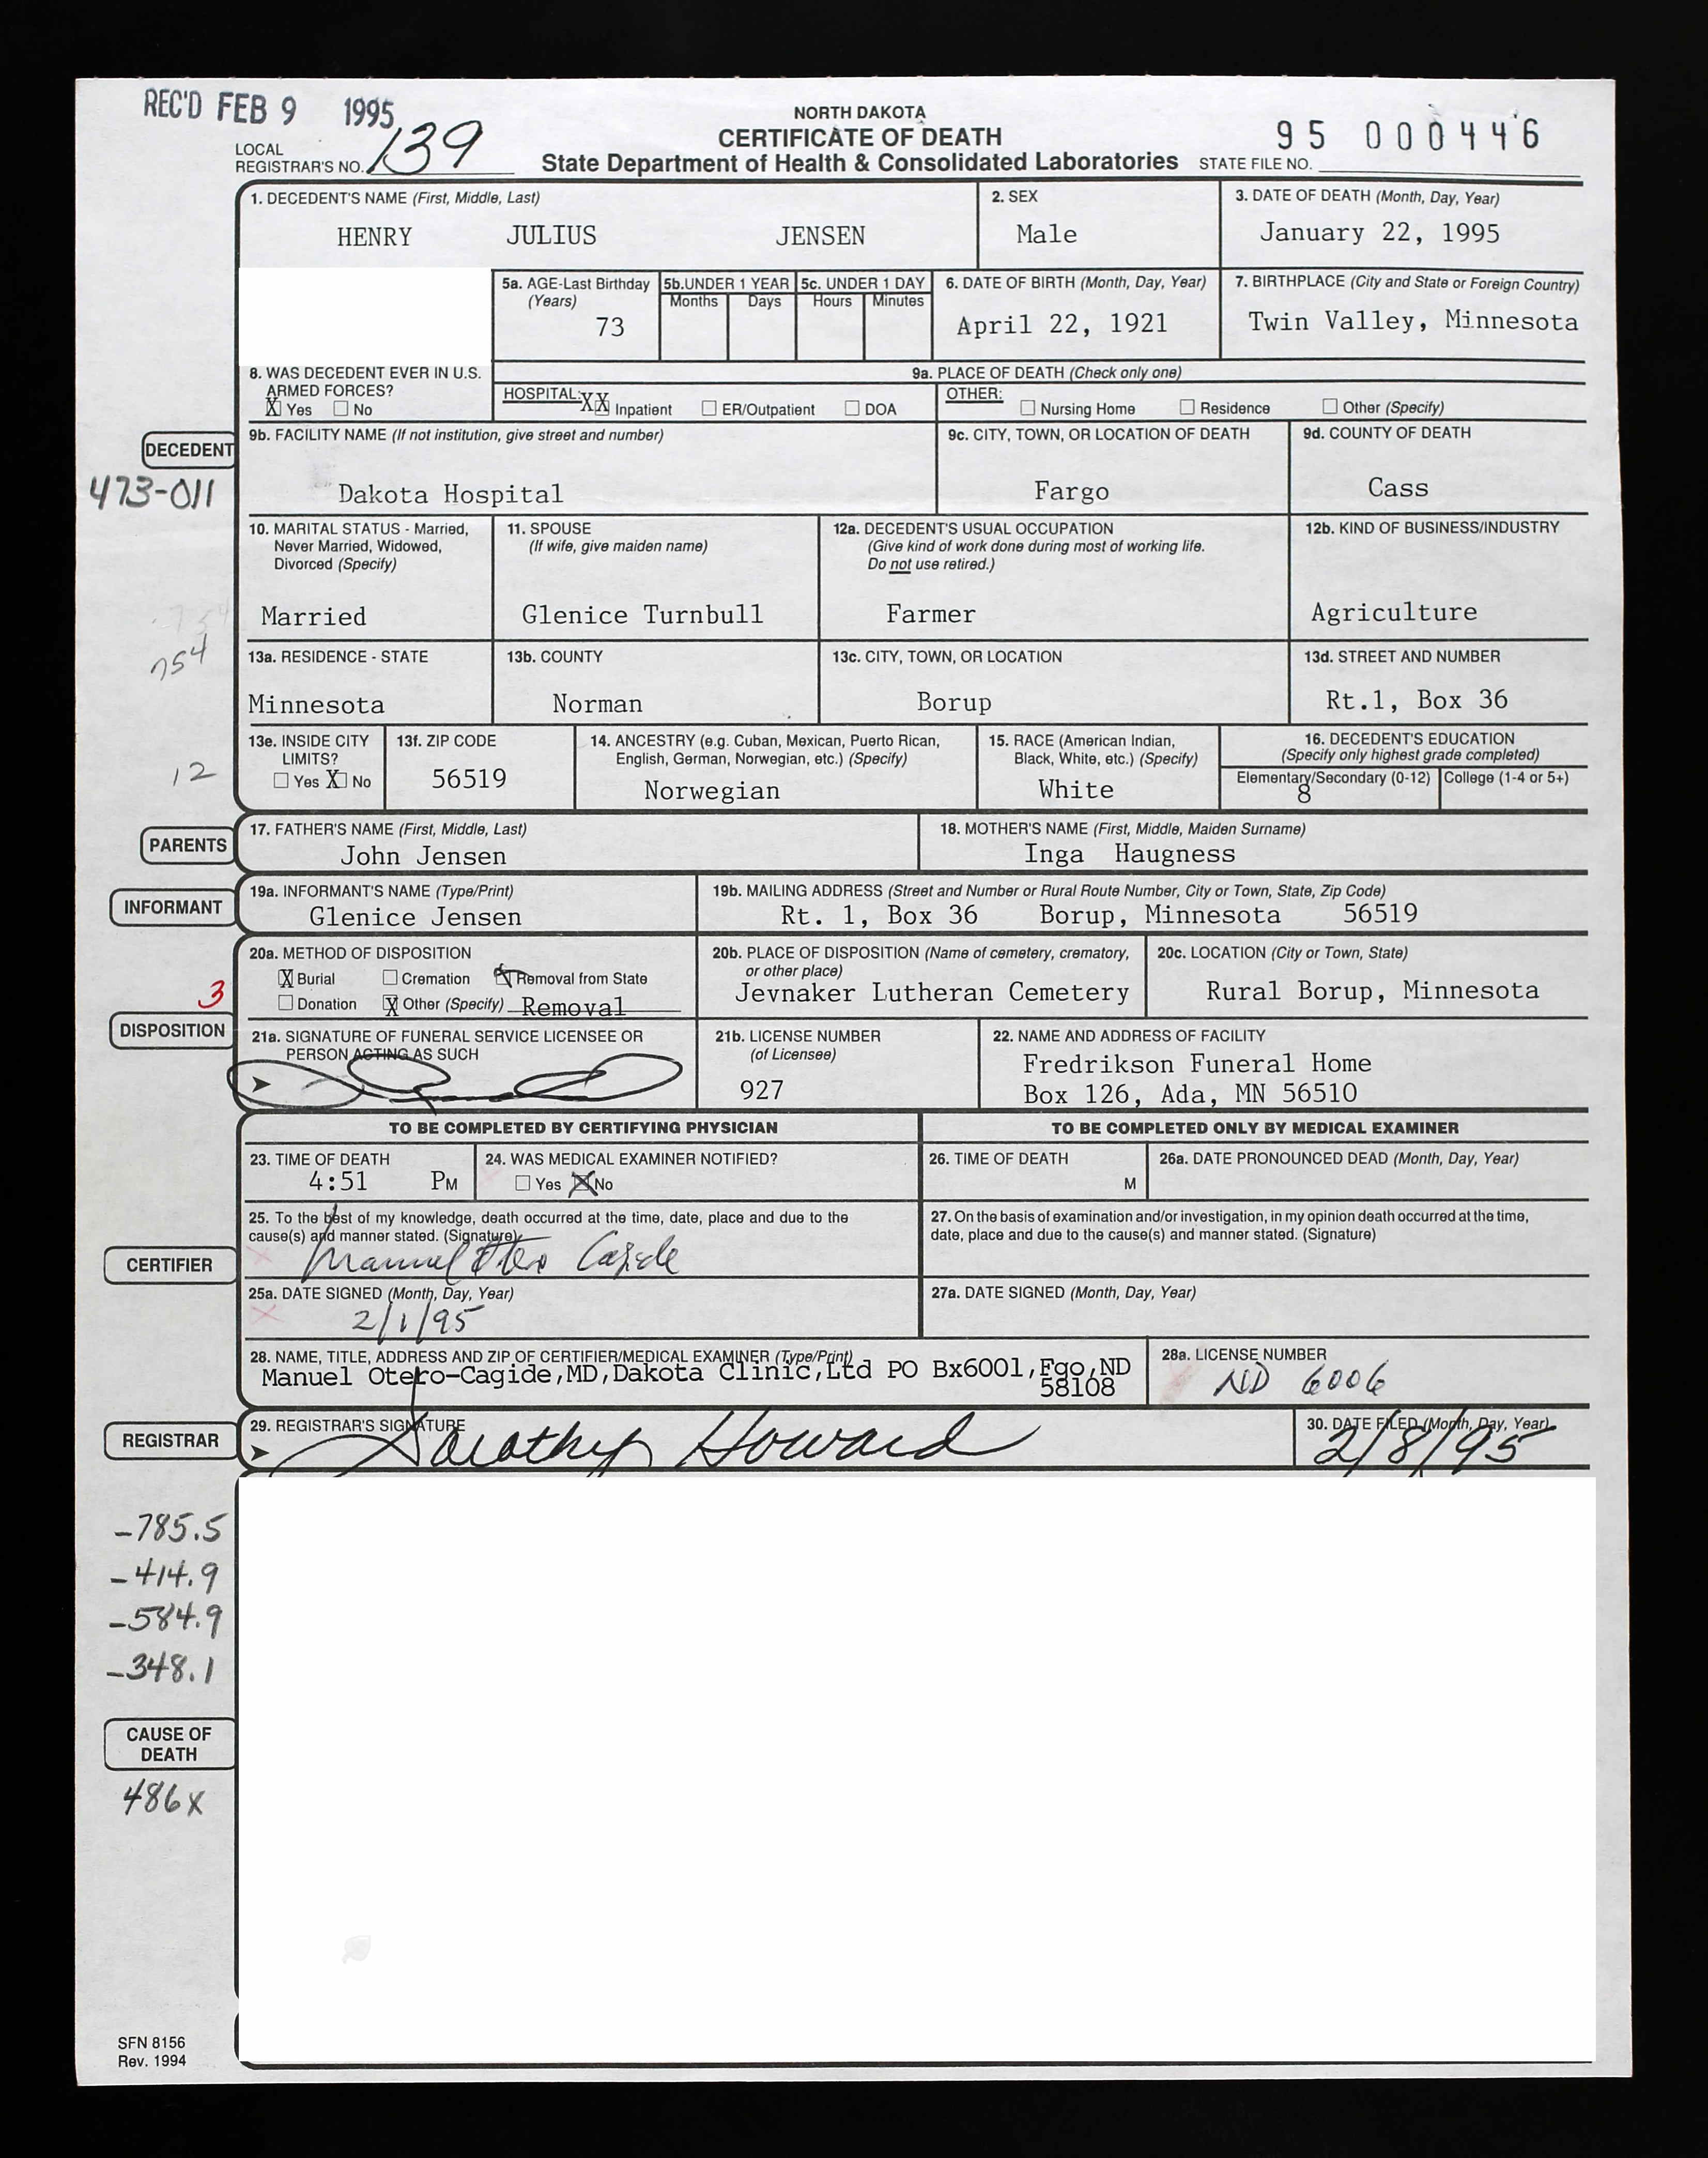 REC'D FEB 9 1995
NORTH DAKOTA
CERTIFICATE OF DEATH
State Department of Health & Consolidated Laboratories
LOCAL
REGISTRAR'S NO. 139
95 000446
STATE FILE NO.
1. DECEDENT'S NAME (First, Middle, Last)
HENRY JULIUS JENSEN
2. SEX
Male
3. DATE OF DEATH (Month, Day, Year)
January 22, 1995
5a. AGE-Last Birthday
(Years)
73
5b. UNDER 1 YEAR
Months Days
5c. UNDER 1 DAY
Hours Minutes
6. DATE OF BIRTH (Month, Day, Year)
April 22, 1921
7. BIRTHPLACE (City and State or Foreign Country)
Twin Valley, Minnesota
8. WAS DECEDENT EVER IN U.S.
ARMED FORCES?
X Yes No
9a. PLACE OF DEATH (Check only one)
HOSPITAL: XX Inpatient ER/Outpatient DOA
OTHER: Nursing Home Residence Other (Specify)
DECEDENT
473-011
9b. FACILITY NAME (If not institution, give street and number)
Dakota Hospital
9c. CITY, TOWN, OR LOCATION OF DEATH
Fargo
9d. COUNTY OF DEATH
Cass
10. MARITAL STATUS - Married,
Never Married, Widowed,
Divorced (Specify)
Married
11. SPOUSE
(If wife, give maiden name)
Glenice Turnbull
12a. DECEDENT'S USUAL OCCUPATION
(Give kind of work done during most of working life.
Do not use retired.)
Farmer
12b. KIND OF BUSINESS/INDUSTRY
Agriculture
754
13a. RESIDENCE - STATE
Minnesota
13b. COUNTY
Norman
13c. CITY, TOWN, OR LOCATION
Borup
13d. STREET AND NUMBER
Rt.1, Box 36
12
13e. INSIDE CITY
LIMITS?
Yes X No
13f. ZIP CODE
56519
14. ANCESTRY (e.g. Cuban, Mexican, Puerto Rican,
English, German, Norwegian, etc.) (Specify)
Norwegian
15. RACE (American Indian,
Black, White, etc.) (Specify)
White
16. DECEDENT'S EDUCATION
(Specify only highest grade completed)
Elementary/Secondary (0-12) College (1-4 or 5+)
8
PARENTS
17. FATHER'S NAME (First, Middle, Last)
John Jensen
18. MOTHER'S NAME (First, Middle, Maiden Surname)
Inga Haugness
INFORMANT
19a. INFORMANT'S NAME (Type/Print)
Glenice Jensen
19b. MAILING ADDRESS (Street and Number or Rural Route Number, City or Town, State, Zip Code)
Rt. 1, Box 36 Borup, Minnesota 56519
3
DISPOSITION
20a. METHOD OF DISPOSITION
X Burial Cremation X Removal from State
Donation X Other (Specify) Removal
20b. PLACE OF DISPOSITION (Name of cemetery, crematory,
or other place)
Jevnaker Lutheran Cemetery
20c. LOCATION (City or Town, State)
Rural Borup, Minnesota
21a. SIGNATURE OF FUNERAL SERVICE LICENSEE OR
PERSON ACTING AS SUCH
21b. LICENSE NUMBER
(of Licensee)
927
22. NAME AND ADDRESS OF FACILITY
Fredrikson Funeral Home
Box 126, Ada, MN 56510
TO BE COMPLETED BY CERTIFYING PHYSICIAN
TO BE COMPLETED ONLY BY MEDICAL EXAMINER
23. TIME OF DEATH
4:51 PM
24. WAS MEDICAL EXAMINER NOTIFIED?
Yes X No
26. TIME OF DEATH
M
26a. DATE PRONOUNCED DEAD (Month, Day, Year)
CERTIFIER
25. To the best of my knowledge, death occurred at the time, date, place and due to the
cause(s) and manner stated. (Signature)
Manuel Otero Cagide
27. On the basis of examination and/or investigation, in my opinion death occurred at the time,
date, place and due to the cause(s) and manner stated. (Signature)
25a. DATE SIGNED (Month, Day, Year)
2/1/95
27a. DATE SIGNED (Month, Day, Year)
28. NAME, TITLE, ADDRESS AND ZIP OF CERTIFIER/MEDICAL EXAMINER (Type/Print)
Manuel Otero-Cagide,MD,Dakota Clinic,Ltd PO Bx6001,Fgo,ND
58108
28a. LICENSE NUMBER
ND 6006
REGISTRAR
29. REGISTRAR'S SIGNATURE
Dorothy Howard
30. DATE FILED (Month, Day, Year)
2/8/95
-785.5
-414.9
-584.9
-348.1
CAUSE OF
DEATH
486X
SFN 8156
Rev. 1994